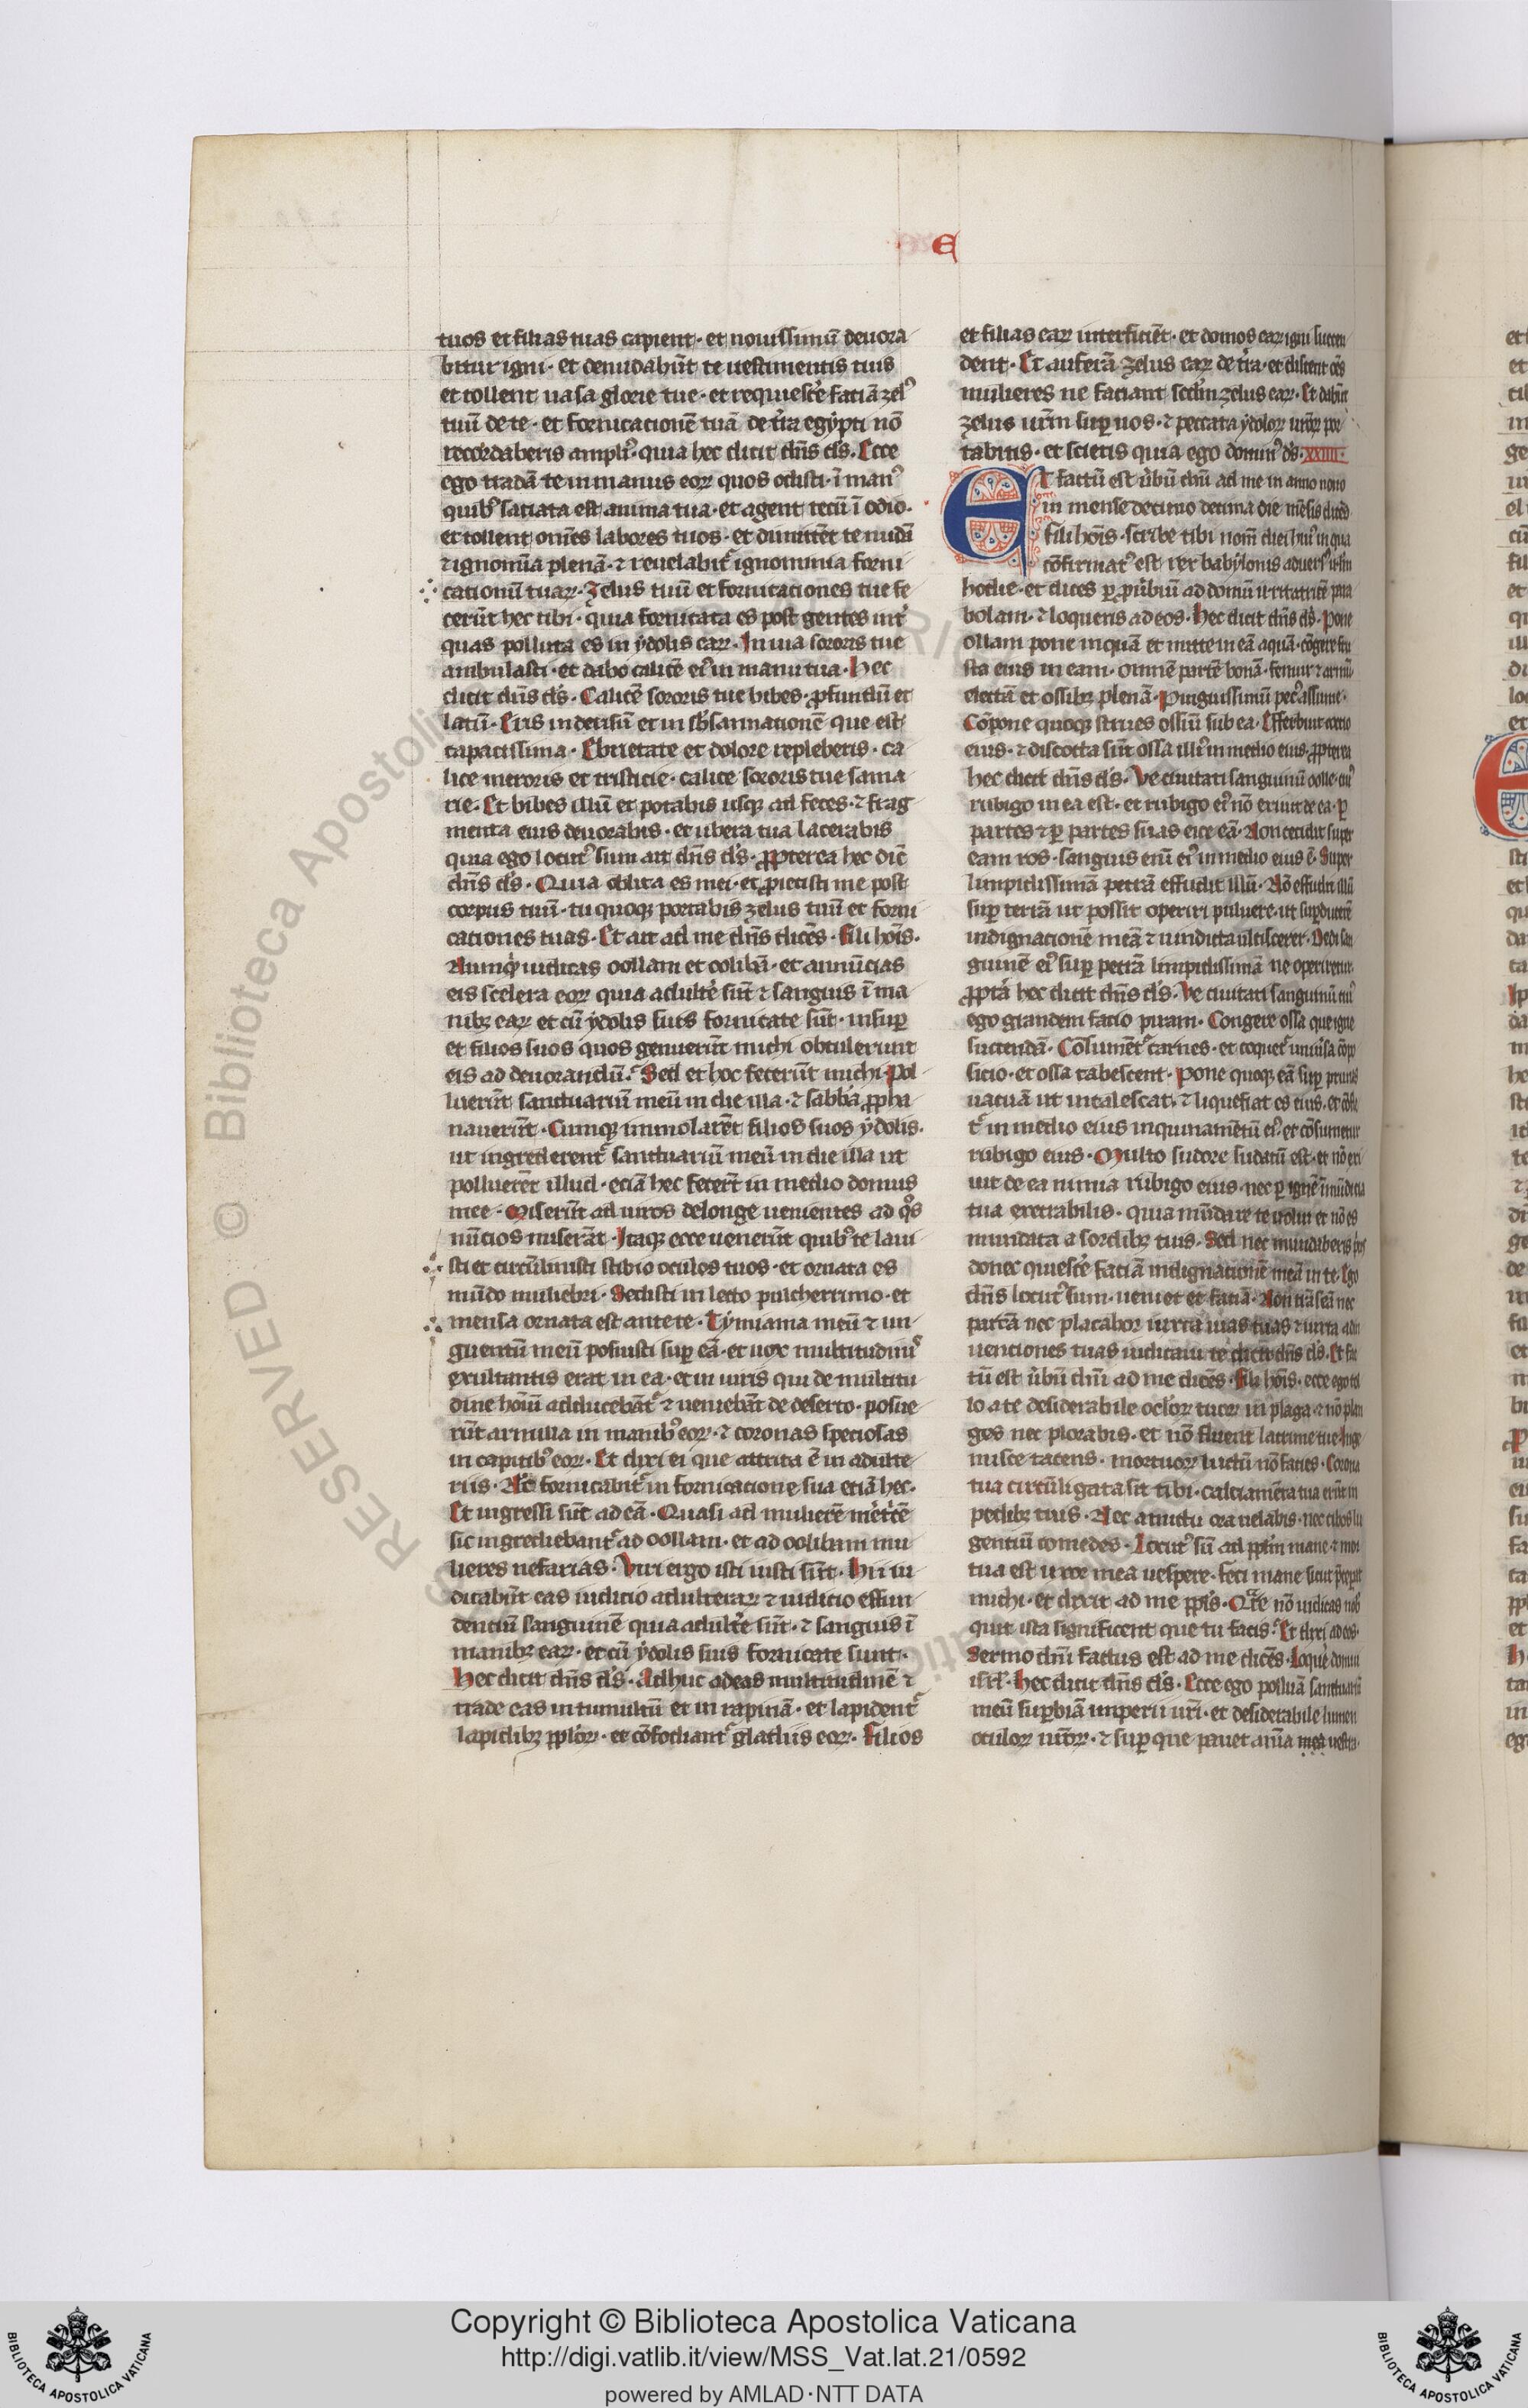 E
tuos et filias tuas capient · et nouissimū deuora
bitur igni · et denudabūt te uestimentis tuis
et tollent uasa glorie tue · et requiesc̄e faciā zelꝰ
tuū de te · et fornicacionē tuā de t̄ra egẏpti nō
recordaberis ampliꝰ · quia hec dicit dn̄s ds̄ · Ecce
ego tradā te in manus eoꝝ quos odisti · ī manꝰ
quibꝰ saciata est anima tua · et agent tecū ī odio ·
et tollent om̄es labores tuos · et dimittēt te nudā
⁊ ignomīa plenā · ⁊ reuelabit᷑ ignominia forni
cationū tuaꝝ · Zelus tuū et fornicationes tue fe
cerūt hec tibi · quia fornicata es post gentes int̄
quas polluta es in ẏdolis eaꝝ · In uia sororis tue
ambulasti · et dabo calicē eiꝰ in manu tua · Hec
dicit dn̄s ds̄ · Calicē sororis tue bibes · ꝓfundū et
latū · Eris in derisū et in sb̄sannationē que est
capacissima · Ebrietate et dolore repleberis · ca
lice meroris et tristicie · calice sororis tue sama
rie · Et bibes illū et potabis usqꝫ ad feces · ⁊ frag
menta eius deuorabis · et ubera tua lacerabis
quia ego locutꝰ sum ait dn̄s ds̄ · ꝓpterea hec dic̄
dn̄s ds̄ · Quia oblita es mei · et ꝓiecisti me post
corpus tuū · tu quoqꝫ portabis zelus tuū et forni
cationes tuas · Et ait ad me dn̄s dicēs · Fili hoīs ·
Nunqͥd iudicas oollam et oolibā · et annūcias
eis scelera eoꝝ quia adult̄e sūt ⁊ sanguis ī ma
nibꝫ eaꝝ et cū ẏdolis suis fornicate sūt · insuꝑ
et filios suos quos genuerūt michi obtulerunt
eis ad deuorandū · Sed et hoc fecerūt michi · Pol
luerūt sanctuariū meū in die illa · ⁊ sabb̄a ꝓpha
nauerūt · Cumqꝫ immolarēt filios suos ẏdolis ·
ut ingrederent᷑ sanctuariū meū in die illa ut
polluerēt illud · eciā hec fecer̄t in medio domus
mee · Miserūt ad uiros delonge uenientes ad qͦs
nūcios miserāt · Itaqꝫ ecce uenerūt quibꝰ te laui
sti et circūlinisti stibio oculos tuos · et ornata es
mūdo muliebri · Sedisti in lecto pulcherrimo · et
mensa ornata est ante te · Tẏmiama meū ⁊ un
guentū meū posuisti suꝑ eā · et uox multitudinis
exultantis erat in ea · et in uiris qui de multitu
dine hoīū adducebāt᷑ ⁊ ueniebāt de deserto · posue
rūt armilla in manibꝰ eoꝝ · ⁊ coronas speciosas
in capitibꝰ eoꝝ · Et dixi ei que attrita ē in adulte
riis · Nūc fornicabit᷑ in fornicatione sua etiā hec ·
Et ingressi sūt ad eā · Quasi ad mulierē mēt̄cē
sic ingrediebant᷑ ad oollam · et ad oolibam mu
lieres nefarias · Viri ergo isti iusti sūt · Hii iu
dicabūt eas iudicio adulteraꝝ ⁊ iudicio effun
dentiū sanguinē quia adult̄e sūt · ⁊ sanguis ī
manibꝫ eaꝝ · et cū ẏdolis suis fornicate sunt ·
Hec dicit dn̄s ds̄ · Adhuc ad eas multitudinē ⁊
trade eas in tumultū et in rapinā · et lapident᷑
lapidibꝫ ppl̄oꝝ · et cōfodiant᷑ gladiis eoꝝ · Filios
et filias eaꝝ interficiēt · et domos eaꝝ igni succen
dent · Et auferā zelus eaꝝ de t̄ra · et discent oēs
mulieres ne faciant scd̄m zelus eaꝝ · Et dabūt
zelus ur̄m suꝑ uos · ⁊ peccata ẏdoloꝝ ur̄oꝝ por
tabitis · et scietis quia ego dominꝰ ds̄ · XXIIII ·
Et factū est u̇bū dn̄i ad me in anno nono
in mense decimo decima die mēsis dicēs
fili hoīs · scribe tibi nom̄ diei huiꝰ in qua
cōfirmatꝰ est rex babẏlonis aduersꝰ ir̄lm
hodie · et dices ꝑ ꝓu̇biū ad domū irritatricē para
bolam · ⁊ loqueris ad eos · Hec dicit dn̄s ds̄ · Pone
ollam pone inquā et mitte in eā aquā · cōgere fru
sta eius in eam · omnē partē bonā · femur ⁊ armū
electā et ossibꝫ plenā · Pinguissimū pecꝰ assume ·
Cōpone quoqꝫ strues ossiū sub ea · Efferbuit coctio
eius · ⁊ discocta sūt ossa illiꝰ in medio eius · ꝓpterea
hec dicit dn̄s ds̄ · Ve ciuitati sanguinū oolle · cuiꝰ
rubigo in ea est · et rubigo eiꝰ nō exiuit de ea · ꝑ
partes ⁊ ꝑ partes suas eice eā · Non cecidit super
eam ros · sanguis enī eiꝰ in medio eius ē · Super
limpidissimā petrā effudit illū · Nō effudit illū
suꝑ terrā ut possit operiri puluere · ut suꝑducerē
indignationē meā ⁊ uindicta ulciscerer · Dedi san
guinē eiꝰ suꝑ petrā limpidissimā ne operiretur ·
ꝓpt̄a hec dicit dn̄s ds̄ · Ve ciuitati sanguinū cuiꝰ
ego grandem facio piram · Congere ossa que igne
succendā · Cōsument᷑ carnes · et coquet᷑ uniu̇sa cōpo
sicio · et ossa tabescent · Pone quoqꝫ eā suꝑ prunas
uacuā ut incalescat · ⁊ liquefiat es eius · et cōfle
t᷑ in medio eius inquinamētū eiꝰ · et cōsumetur
rubigo eius · Multo sudore sudatū est · et nō exi
uit de ea nimia rubigo eius · nec ꝑ ignē īmūdicia
tua execrabilis · quia mūdare te uolui et nō es
mundata a sordibꝫ tuis · Sed nec mundaberis pͥus
donec quiesc̄e faciā indignationē meā in te · Ego
dn̄s locutꝰ sum · ueniet et faciā · Non trāseā nec
parcā nec placabor iuxta uias tuas ⁊ iuxta adin
uentiones tuas iudicaui te dicit dn̄s ds̄ · Et fac
tū est u̇bū dn̄i ad me dicēs · Fili hoīs · ecce ego tol
lo a te desiderabile ocl̄oꝝ tuoꝝ in plaga · ⁊ nō plan
ges nec plorabis · et nō fluent lacrime tue · Inge
misce tacens · mortuoꝝ luctū nō facies · Corona
tua circūligata sit tibi · calciamēta tua erūt in
pedibꝫ tuis · Nec amictu ora uelabis · nec cibos lu
gentiū comedes · Locutꝰ sū ad ppl̄m mane · ⁊ mor
tua est uxor mea uespere · feci mane sicut p̄ceperat
michi · et dixit ad me ppl̄s · Qͣre nō indicas nob̄
quit ista significent que tu facis · Et dixi ad eos ·
Sermo dn̄i factus est ad me dicēs · Loque domui
isrl̄ · Hec dicit dn̄s ds̄ · Ecce ego polluā sanctuariū
meū suꝑbiā imperii ur̄i · et desiderabile lumen
oculoꝝ ur̄oꝝ · ⁊ suꝑ que pauet anīa mea uestra ·
RESERVED © Biblioteca Apostolica Vaticana
Copyright © Biblioteca Apostolica Vaticana
http://digi.vatlib.it/view/MSS_Vat.lat.21/0592
powered by AMLAD·NTT DATA
BIBLIOTECA APOSTOLICA VATICANA
BIBLIOTECA APOSTOLICA VATICANA